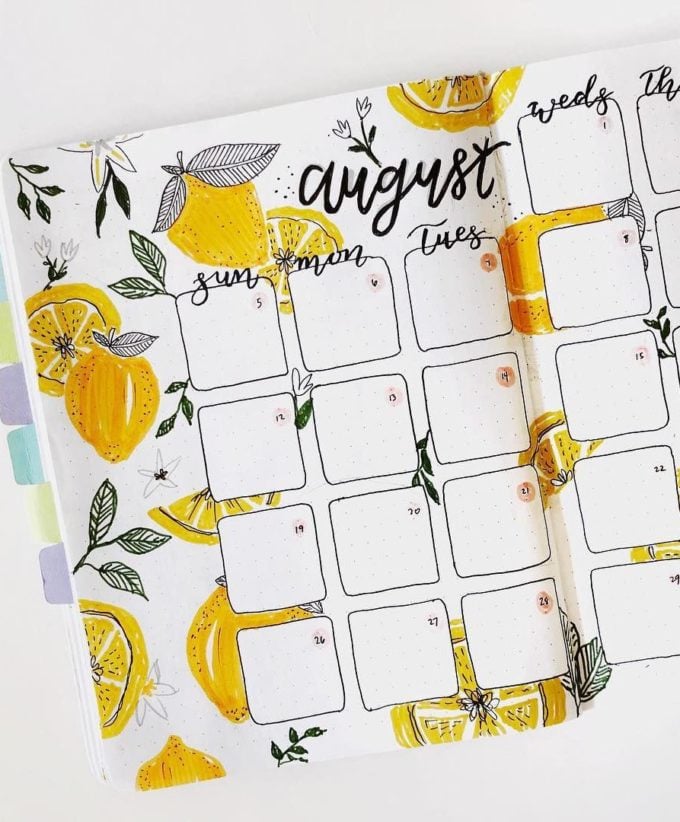 august
sun mon Tues weds Th
1
5 6 7 8
12 13 14 15
19 20 21 22
26 27 28 29